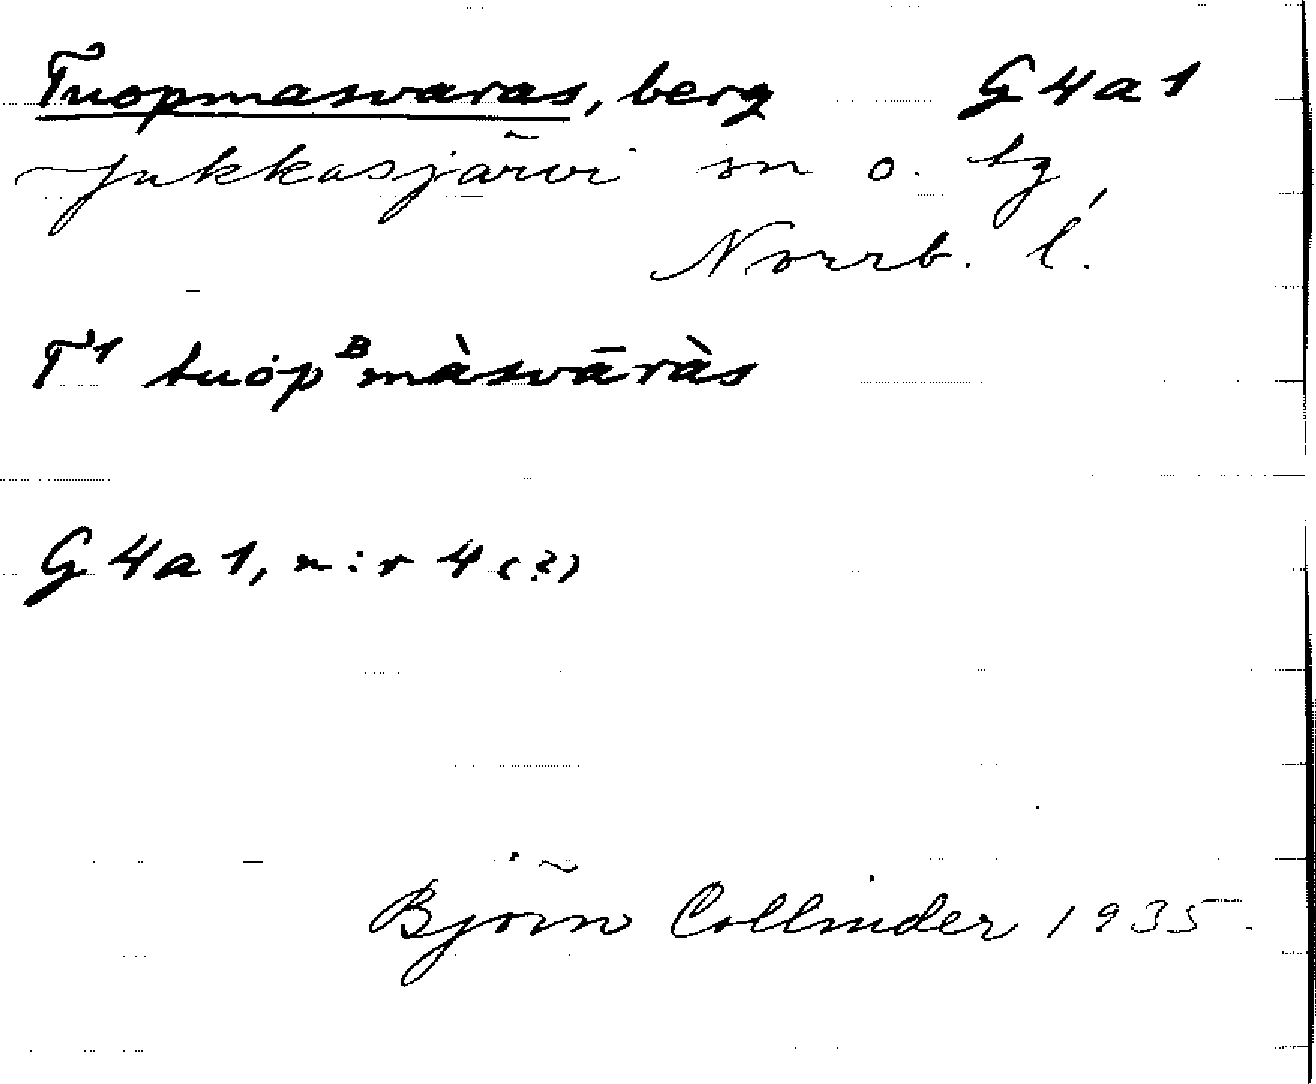 Tuopmasvaras, berg G4a1
Jukkasjärvi sn o. tg
Norrb. l.
T1 tuȯpᴮmàsvāràs
G4a1, n:r 4 (?)
Björn Collinder 1935.